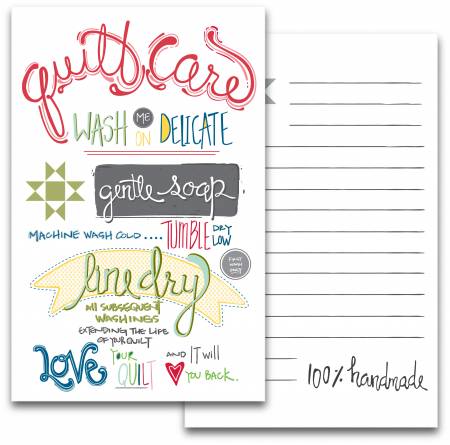 quilt care
WASH ME ON DELICATE
gentle soap
MACHINE WASH COLD .... TUMBLE DRY LOW
FIRST WASH ONLY
line dry
All SUBSEQUENT
WASHINGS
EXTENDING THE LIFE
OF YOUR QUILT
LOVE YOUR QUILT AND IT Will ♥ YOU BACK.
100% handmade